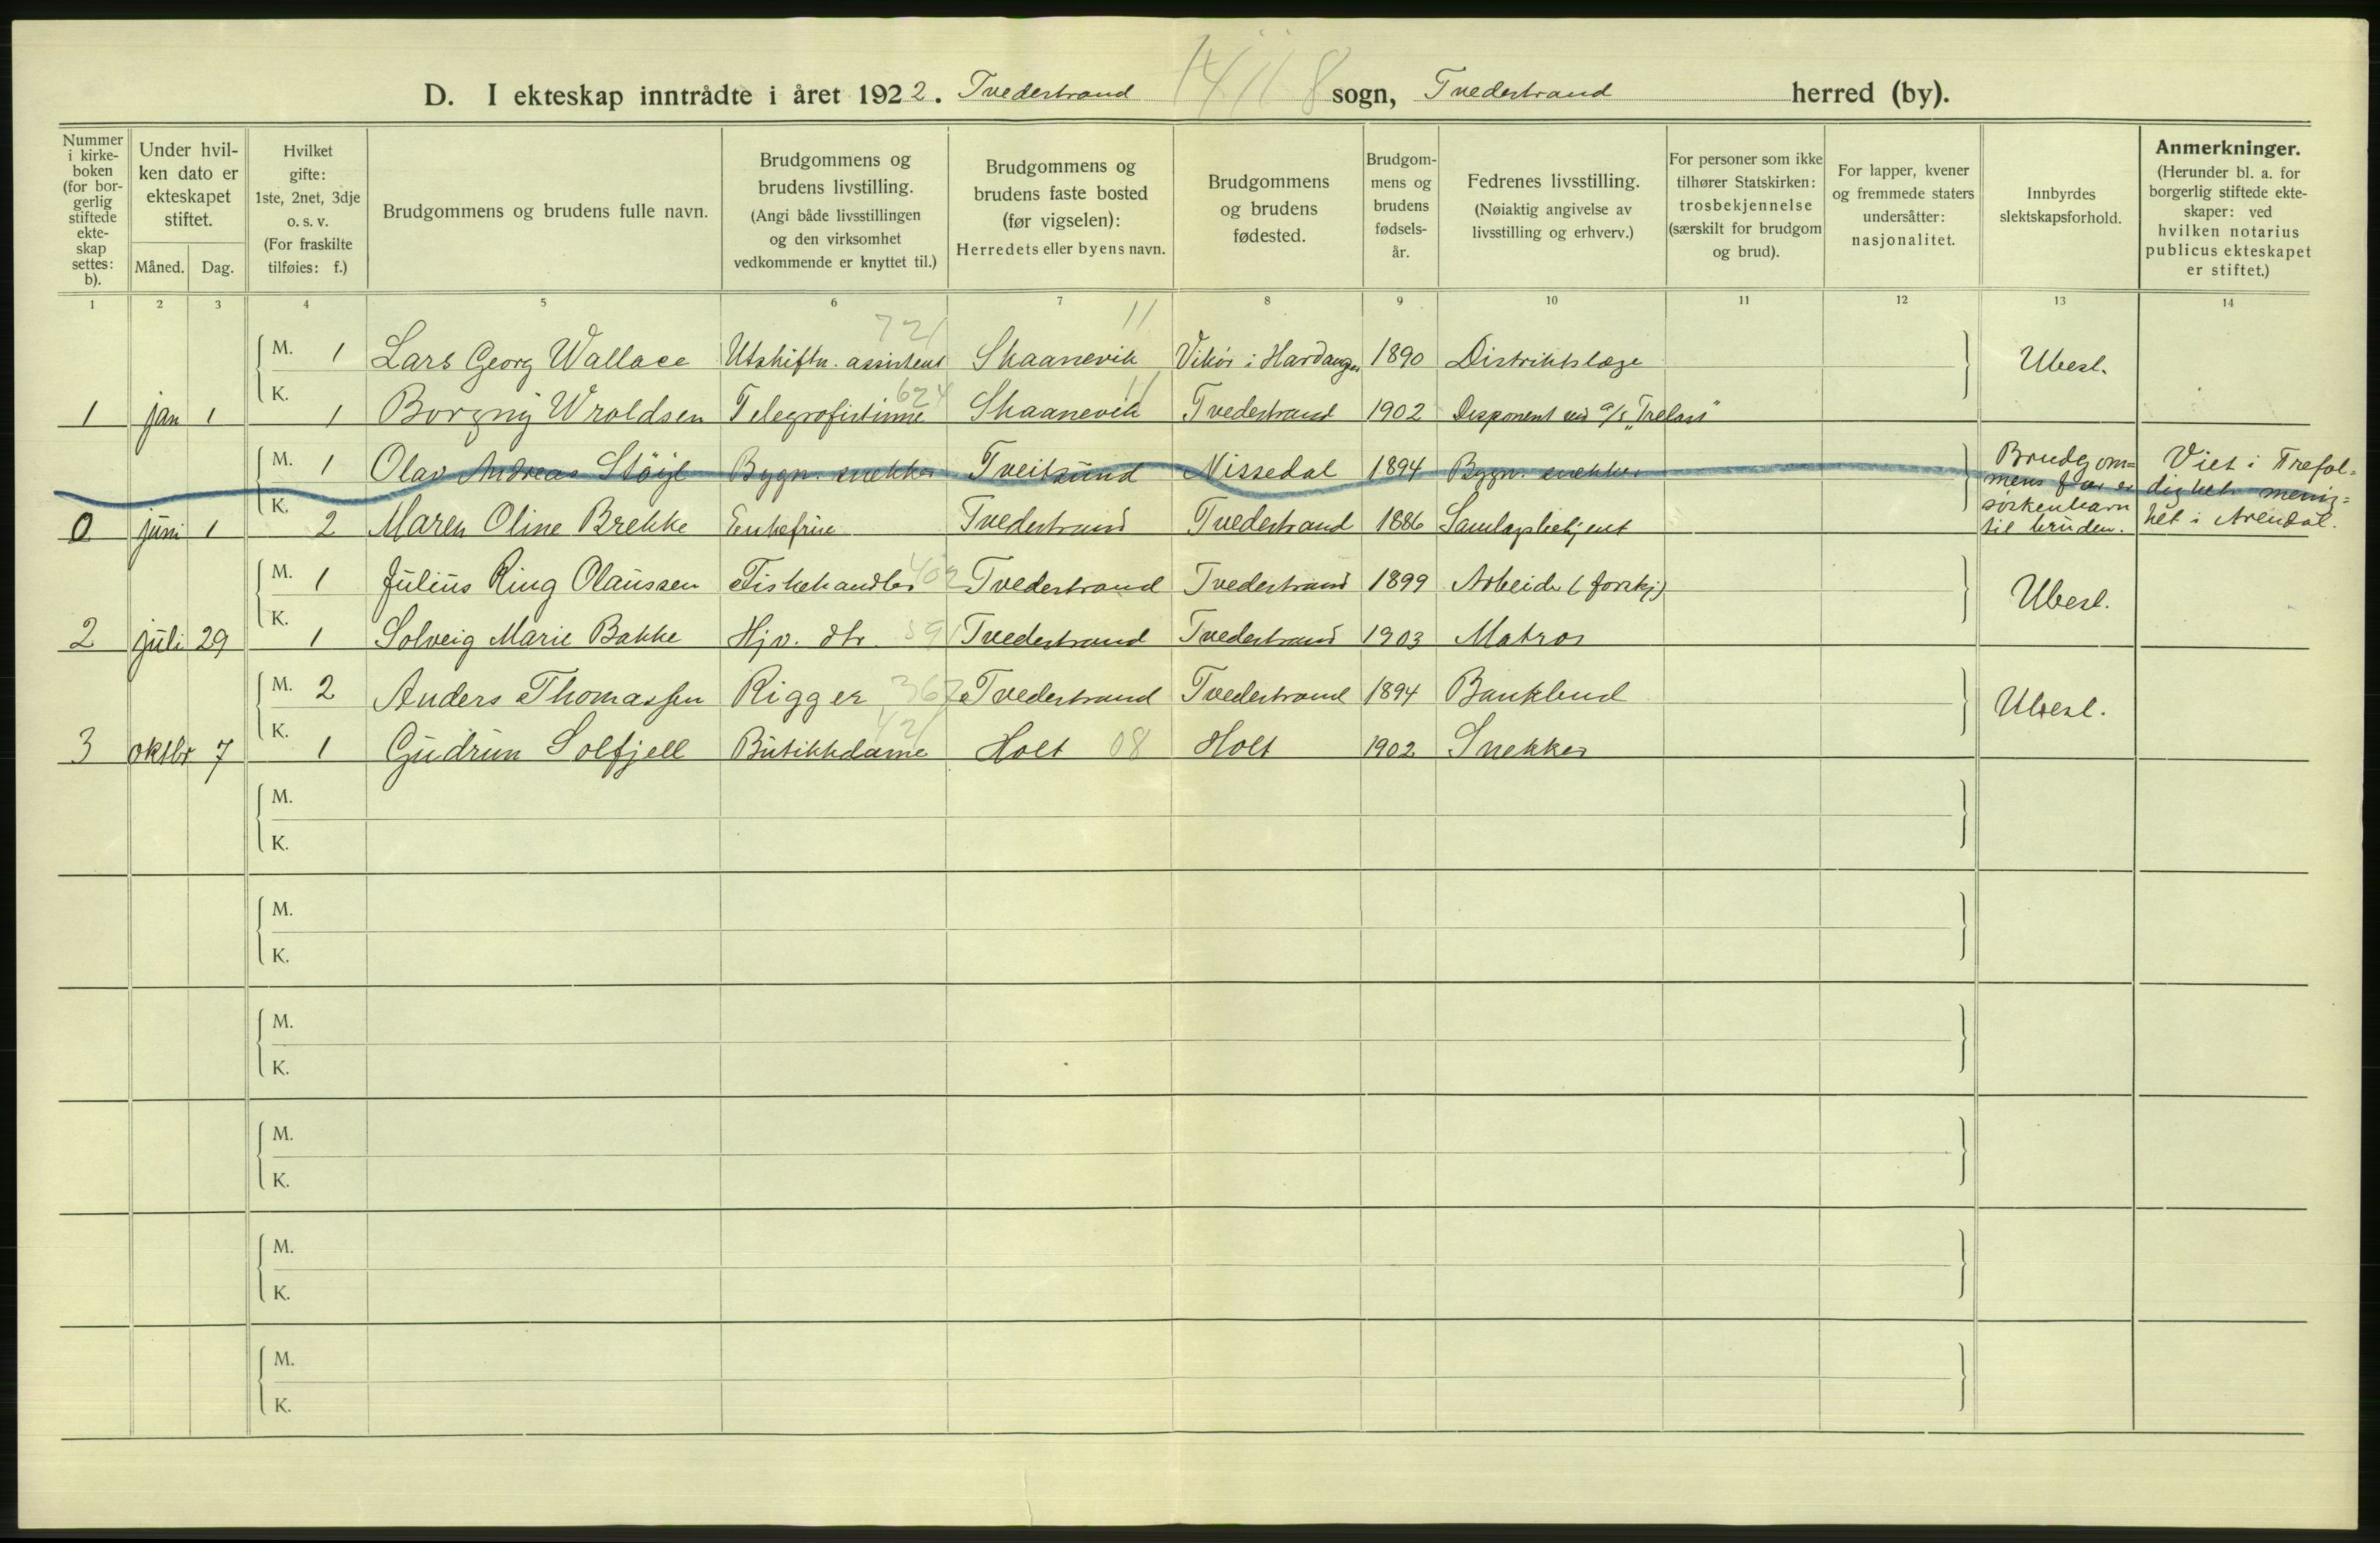 14118
D. I ekteskap inntrådte i året 1922. Tvedestrand sogn, Tvedestrand herred (by).
Nummer i kirke- boken (for bor- gerlig stiftede ekte- skap settes: b).
Under hvil- ken dato er ekteskapet stiftet.
Måned. Dag.
Hvilket gifte: 1ste, 2net, 3dje o. s. v. (For fraskilte tilføies: f.)
Brudgommens og brudens fulle navn.
Brudgommens og brudens livstilling. (Angi både livsstillingen og den virksomhet vedkommende er knyttet til.)
Brudgommens og brudens faste bosted (før vigselen): Herredets eller byens navn.
Brudgommens og brudens fødested.
Brudgom- mens og brudens fødsels- år.
Fedrenes livsstilling. (Nøiaktig angivelse av livsstilling og erhverv.)
For personer som ikke tilhører Statskirken: trosbekjennelse (særskilt for brudgom og brud).
For lapper, kvener og fremmede staters undersåtter: nasjonalitet.
Innbyrdes slektskapsforhold.
Anmerkninger. (Herunder bl. a. for borgerlig stiftede ekte- skaper: ved hvilken notarius publicus ekteskapet er stiftet.)
1 2 3 4 5 6 7 8 9 10 11 12 13 14
721 11
M. 1 Lars Georg Wallace Utskiftn. assistent Skaanevik Vikør i Hardanger 1890 Distriktslæge Ubesl.
624 11
1 jan 1 K. 1 Borgny Wroldsen Telegrafistinne Skaanevik Tvedestrand 1902 Disponent ved a/s "Trelast"
M. 1 Olav Andreas Støyl Bygn. snekker Tveitsund Nissedal 1894 Bygn. snekker Brudgom= mens far er søskenbarn til bruden. Viet i Trefol= dighet menig= het i Arendal.
0 juni 1 K. 2 Maren Oline Brekke Enkefrue Tvedestrand Tvedestrand 1886 Samlagsbetjent
M. 1 Julius Ring Olaussen Fiskehandler 402 Tvedestrand Tvedestrand 1899 Arbeider (forskj) Ubesl.
2 juli 29 K. 1 Solveig Marie Bakke Hjv. dtr. 591 Tvedestrand Tvedestrand 1903 Matros
M. 2 Anders Thomassen Rigger 367 Tvedestrand Tvedestrand 1894 Bankbud Ubesl.
421
3 oktbr 7 K. 1 Gudrun Solfjell Butikkdame Holt 08 Holt 1902 Snekker
M.
K.
M.
K.
M.
K.
M.
K.
M.
K.
M.
K.